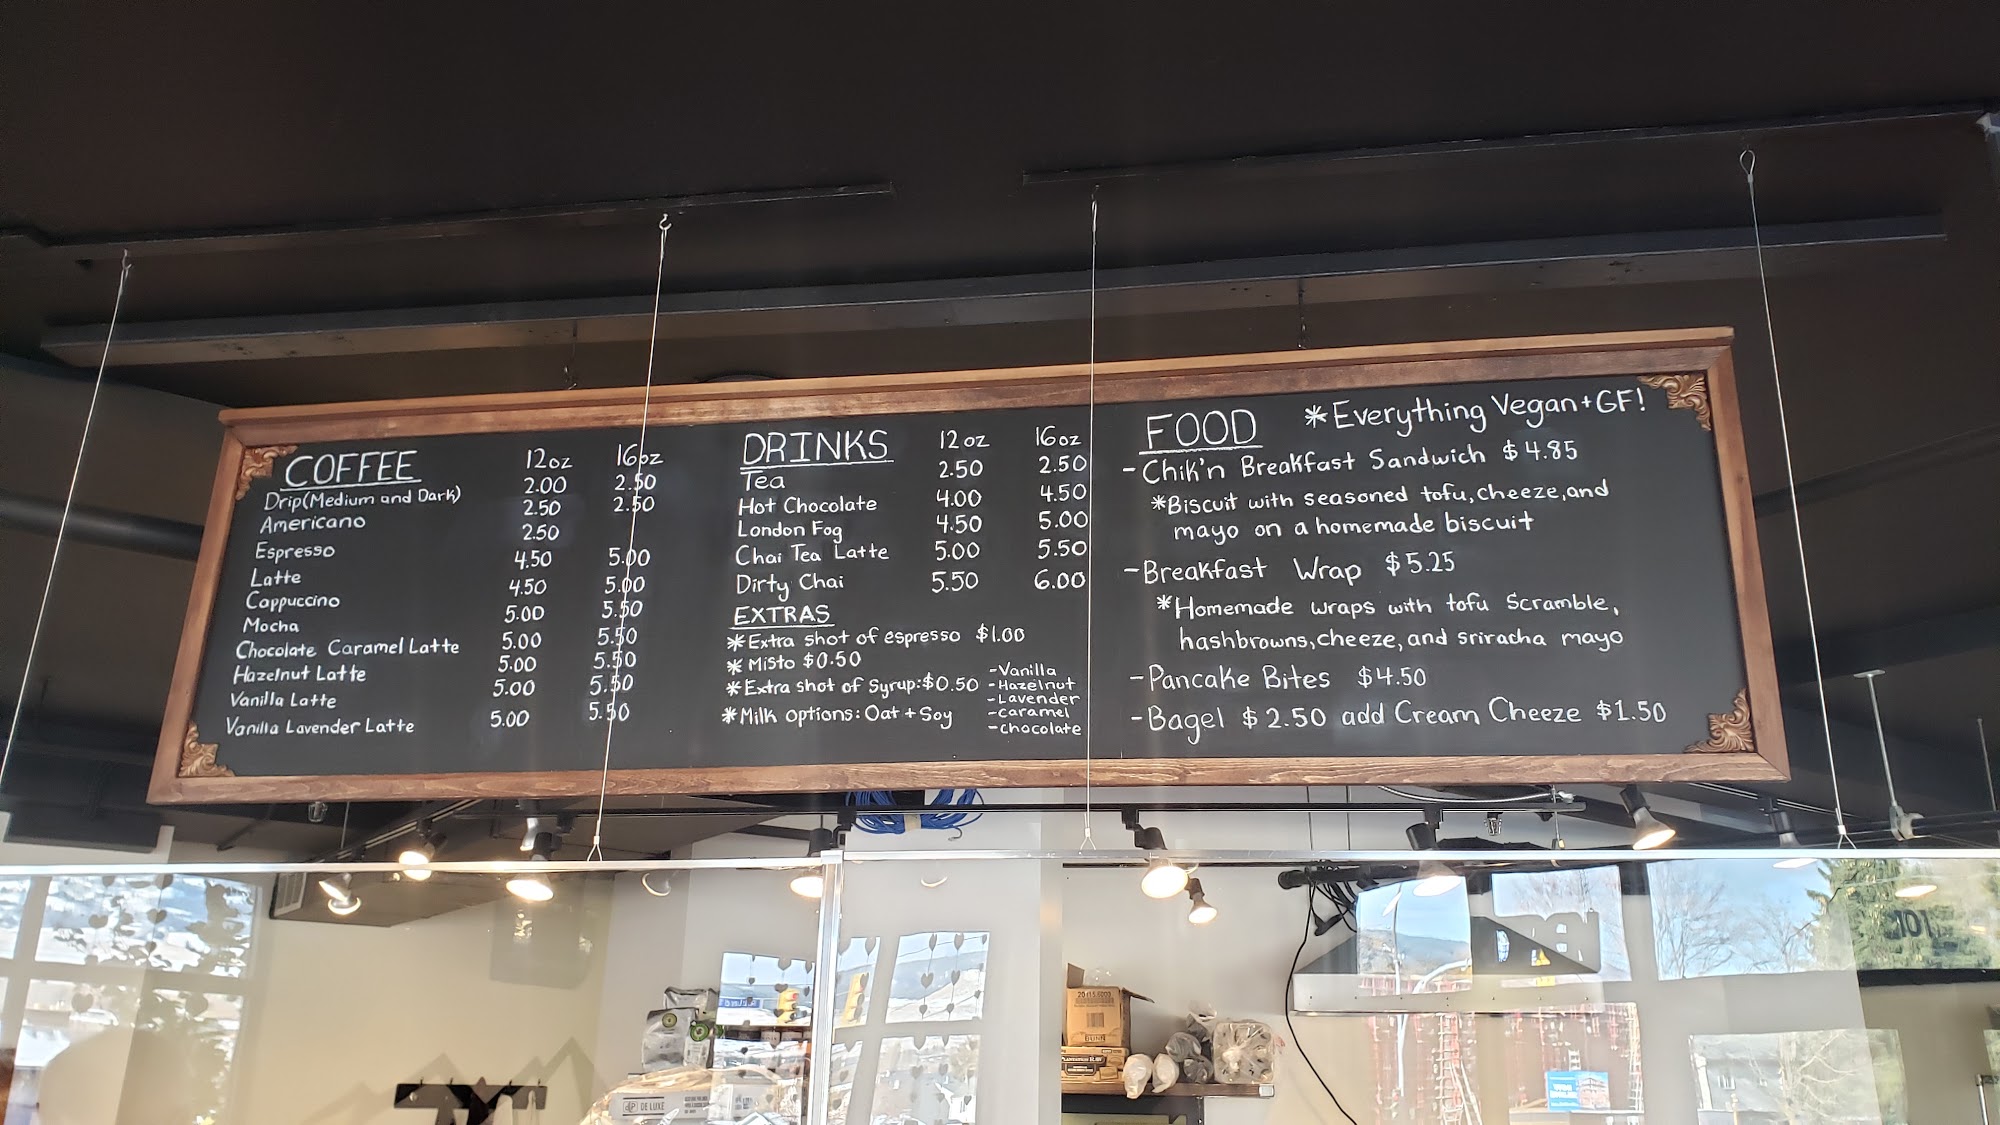 COFFEE 12oz 16oz
Drip(Medium and Dark) 2.00 2.50
Americano 2.50 2.50
Espresso 2.50
Latte 4.50 5.00
Cappuccino 4.50 5.00
Mocha 5.00 5.50
Chocolate Caramel Latte 5.00 5.50
Hazelnut Latte 5.00 5.50
Vanilla Latte 5.00 5.50
Vanilla Lavender Latte 5.00 5.50
DRINKS 12oz 16oz
Tea 2.50 2.50
Hot Chocolate 4.00 4.50
London Fog 4.50 5.00
Chai Tea Latte 5.00 5.50
Dirty Chai 5.50 6.00
EXTRAS
*Extra shot of espresso $1.00
*Misto $0.50
*Extra shot of Syrup:$0.50
-Vanilla
-Hazelnut
-Lavender
-caramel
-chocolate
*Milk options: Oat + Soy
FOOD *Everything Vegan+GF!
-Chik'n Breakfast Sandwich $4.85
*Biscuit with seasoned tofu, cheeze, and
mayo on a homemade biscuit
-Breakfast Wrap $5.25
*Homemade wraps with tofu Scramble,
hashbrowns, cheeze, and sriracha mayo
-Pancake Bites $4.50
-Bagel $2.50 add Cream Cheeze $1.50
DE LUXE